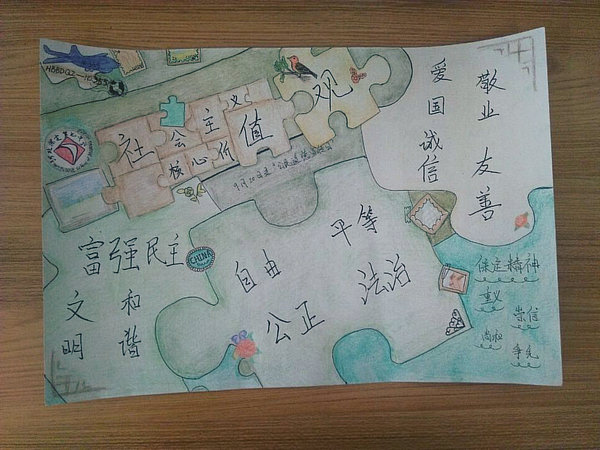 社会主义
核心价值观
富强民主
文明
和谐
自由
平等
公正
法治
爱国
诚信
敬业
友善
保定精神
重义
崇信
尚和
争先
CHINA